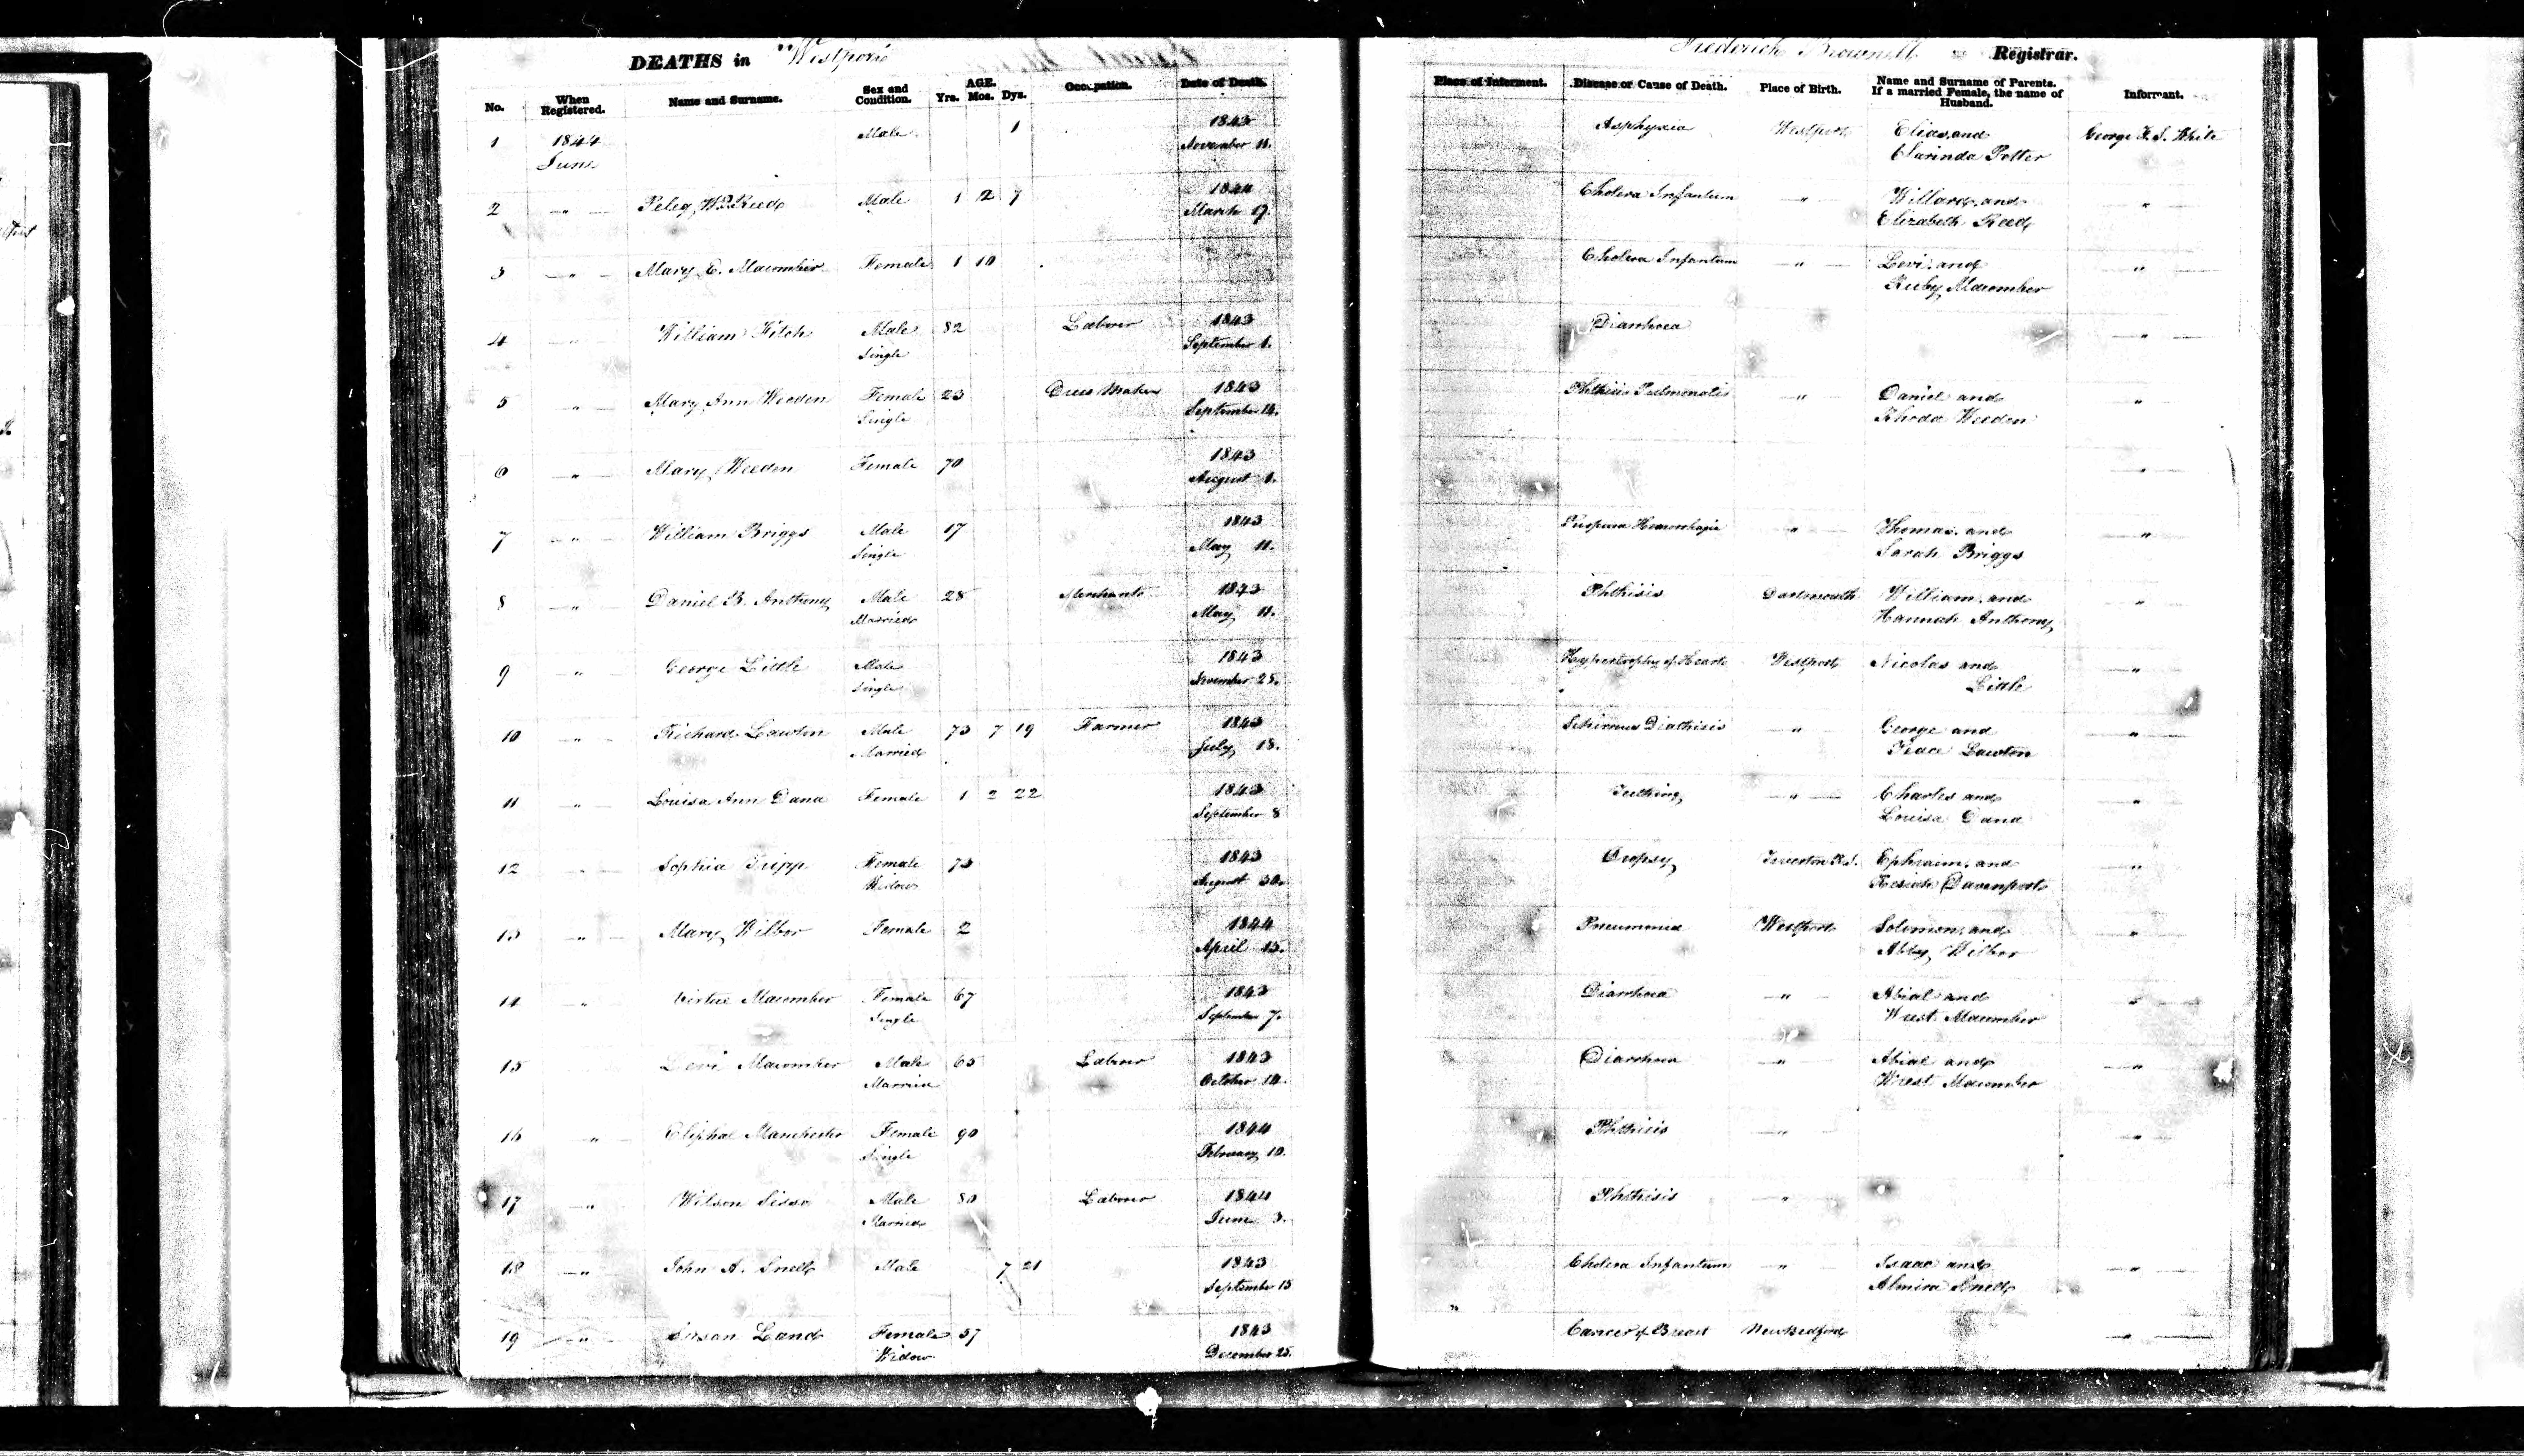 DEATHS in Westport
Frederick Brownell Registrar.
No. When Registered. Name and Surname. Sex and Condition. AGE. Yrs. Mos. Dys. Occupation. Date of Death. Place of Interment. Disease or Cause of Death. Place of Birth. Name and Surname of Parents. If a married Female, the name of Husband. Informant.
1 1844 Male 1 1843 Asphyxia Westport Elias and George F. S. White
June November 11. Clarinda Potter
2 " Peleg W. Reed Male 1 2 7 1844 Cholera Infantum " Willard and "
March 17. Elizabeth Reed
3 " Mary E. Macomber Female 1 10 Cholera Infantum " Levi and "
Ruby Macomber
4 " William Fitch Male 82 Laborer 1843 Diarrhoea "
Single September 1.
5 " Mary Ann Weeden Female 23 Dress Maker 1843 Phthisis Pulmonalis " Daniel and "
Single September 14. Rhoda Weeden
6 " Mary Weeden Female 70 1843 "
August 1.
7 " William Briggs Male 17 1843 Purpura Hemorrhagia " Thomas and "
Single May 11. Sarah Briggs
8 " Daniel B. Anthony Male 28 Merchant 1843 Phthisis Dartmouth William and "
Married May 11. Hannah Anthony
9 " George Little Male 1843 Hypertrophy of Heart Westport Nicolas and "
Single November 25. Little
10 " Richard Lawton Male 73 7 19 Farmer 1843 Schirrous Diathisis " George and "
Married July 18. Peace Lawton
11 " Louisa Ann Dana Female 1 2 22 1843 Teething " Charles and "
September 8 Louisa Dana
12 " Sophia Tripp Female 73 1843 Dropsy Tiverton R.I. Ephraim and "
Widow August 30. Kesiah Davenport
13 " Mary Wilbor Female 2 1844 Pneumonia Westport Solomon and "
April 13. Abby Wilbor
14 " Virtue Macomber Female 67 1843 Diarrhoea " Abial and "
Single September 7. Wrest Macomber
15 Levi Macomber Male 65 Laborer 1843 Diarrhoea " Abial and "
Married October 14. Wrest Macomber
16 " Eliphal Manchester Female 90 1844 Phthisis " "
Single February 10.
17 " Wilson Sisson Male 80 Laborer 1844 Phthisis "
Married June 3.
18 " John A. Snell Male 7 21 1843 Cholera Infantum " Isaac and "
September 15 Almira Snell
19 " Susan Land Female 57 1843 Cancer of Breast New Bedford "
Widow December 25.